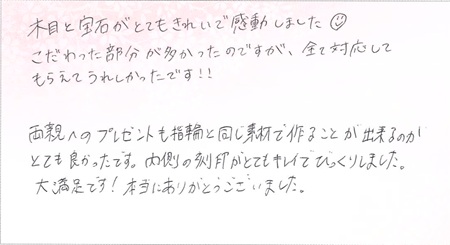 木目と宝石がとてもきれいで感動しました☺
こだわった部分が多かったのですが、全て対応して
もらえてうれしかったです!!
両親へのプレゼントも指輪と同じ素材で作ることが出来るのが
とても良かったです。内側の刻印がとてもキレイでびっくりしました。
大満足です!本当にありがとうございました。